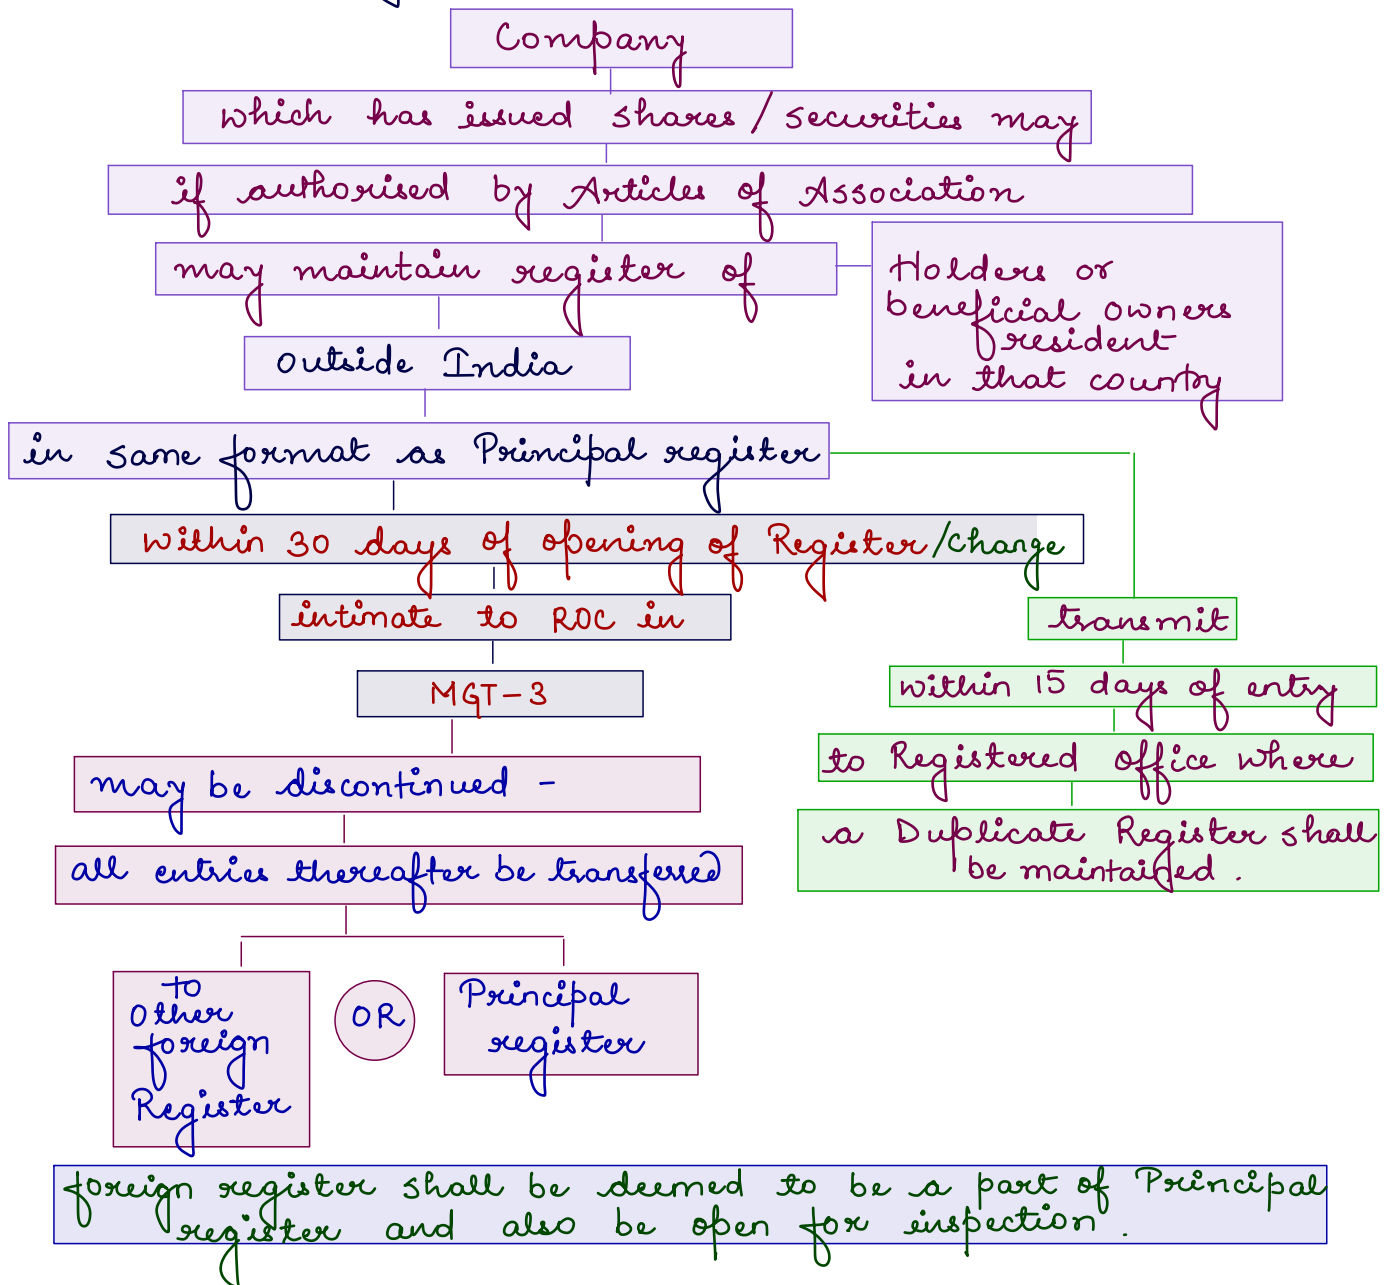 Company
which has issued shares / securities may
if authorised by Articles of Association
may maintain register of
Holders or
beneficial owners
resident
in that country
Outside India
in same format as Principal register
within 30 days of opening of Register/change
intimate to ROC in
MGT-3
may be discontinued -
all entries thereafter be transferred
to
Other
foreign
Register
OR
Principal
register
transmit
within 15 days of entry
to Registered office where
a Duplicate Register shall
be maintained.
foreign register shall be deemed to be a part of Principal
register and also be open for inspection.